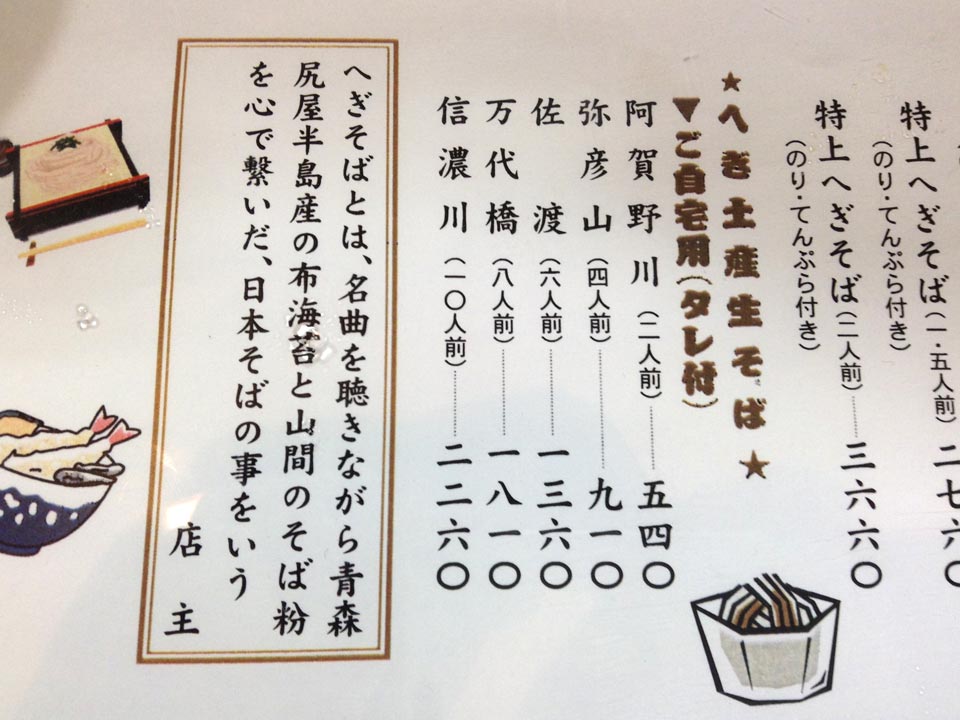 特上へぎそば（一・五人前）二七六〇
（のり・てんぷら付き）
特上へぎそば（二人前）三六六〇
（のり・てんぷら付き）
★へぎ土産生そば★
▼ご自宅用（タレ付）
阿賀野川（二人前）五四〇
弥彦山（四人前）九一〇
佐渡（六人前）一三六〇
万代橋（八人前）一八一〇
信濃川（一〇人前）二二六〇
へぎそばとは、名曲を聴きながら青森
尻屋半島産の布海苔と山間のそば粉
を心で繋いだ、日本そばの事をいう
店主